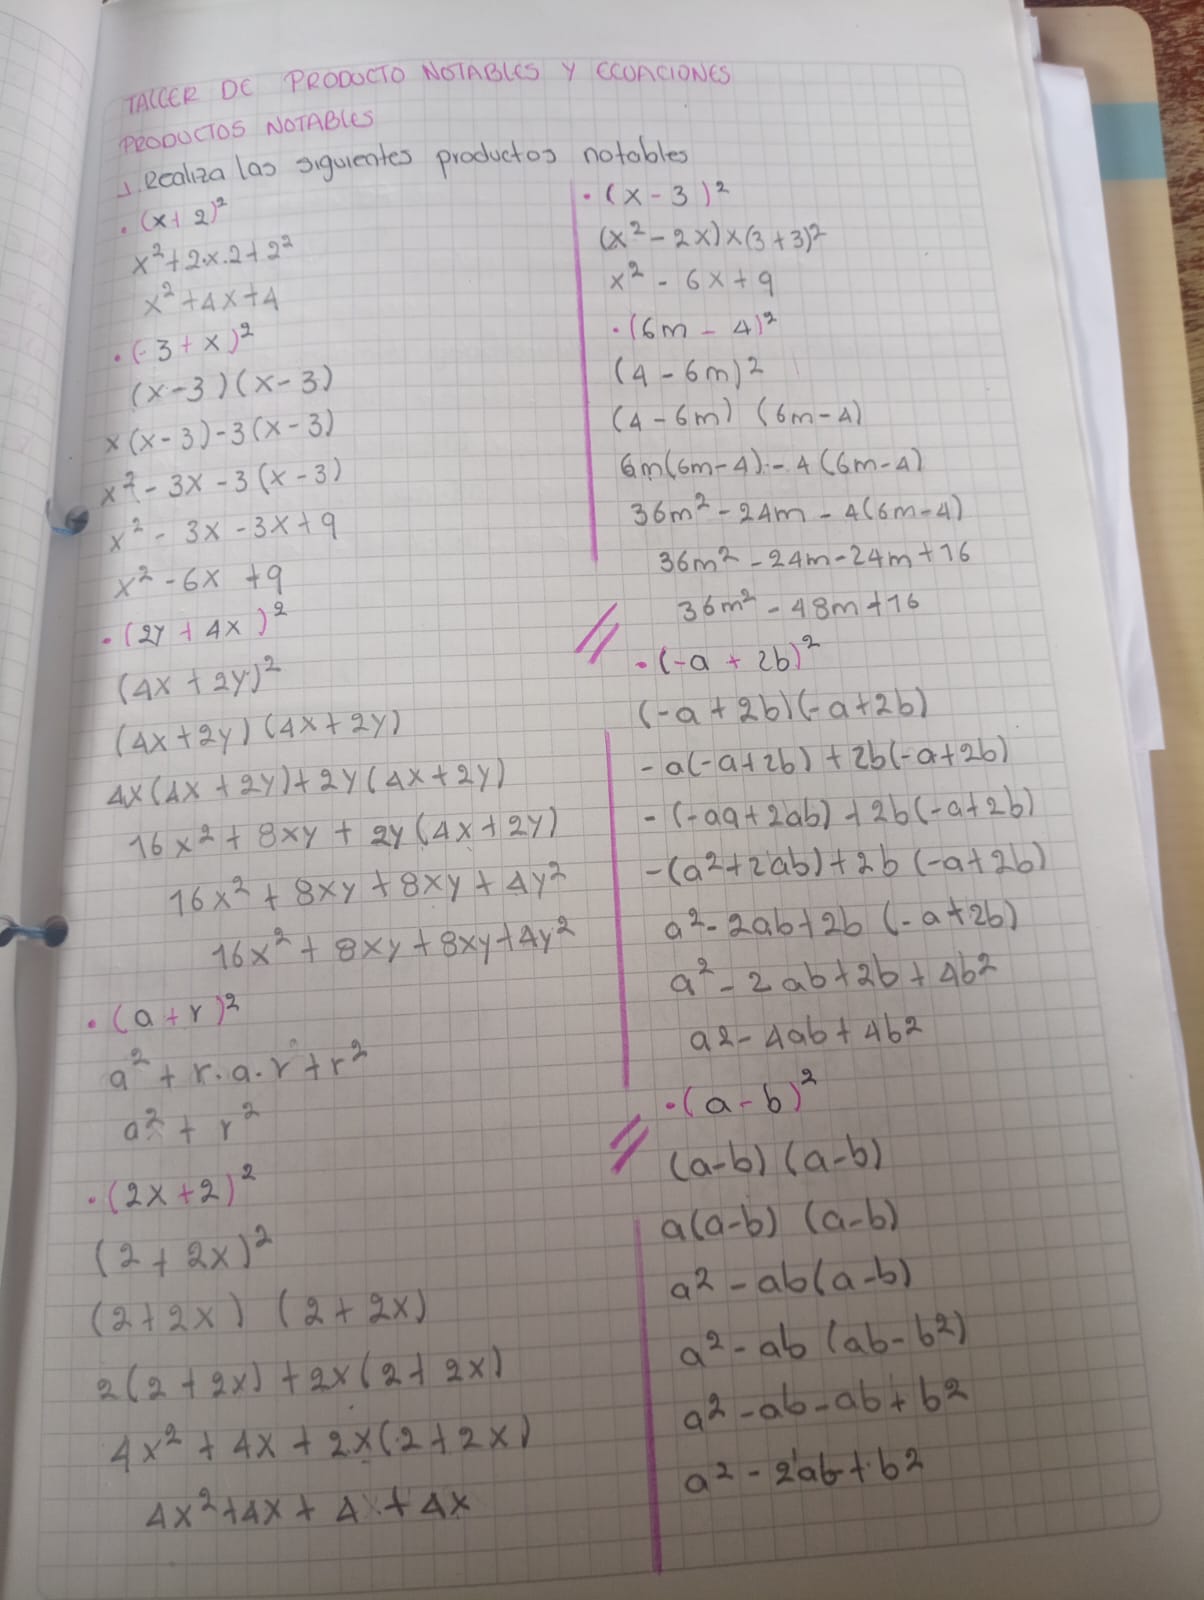 TALLER DE PRODUCTO NOTABLES Y ECUACIONES
PRODUCTOS NOTABLES
1. Realiza las siguientes productos notables
• (x + 2)²
x² + 2.x.2 + 2²
x² + 4x + 4
• (-3 + x)²
(x - 3) (x - 3)
x (x - 3) - 3 (x - 3)
x² - 3x - 3 (x - 3)
x² - 3x - 3x + 9
x² - 6x + 9
• (2y + 4x)²
(4x + 2y)²
(4x + 2y) (4x + 2y)
4x (4x + 2y) + 2y (4x + 2y)
16x² + 8xy + 2y (4x + 2y)
16x² + 8xy + 8xy + 4y²
16x² + 8xy + 8xy + 4y²
• (a + r)²
a² + r.a.r + r²
a² + r²
• (2x + 2)²
(2 + 2x)²
(2 + 2x) (2 + 2x)
2 (2 + 2x) + 2x (2 + 2x)
4x² + 4x + 2x (2 + 2x)
4x² + 4x + 4x + 4x
• (x - 3)²
(x² - 2x) x (3 + 3)²
x² - 6x + 9
• (6m - 4)²
(4 - 6m)²
(4 - 6m) (6m - 4)
6m (6m - 4) - 4 (6m - 4)
36m² - 24m - 4 (6m - 4)
36m² - 24m - 24m + 16
36m² - 48m + 16
• (-a + 2b)²
(-a + 2b) (-a + 2b)
-a (-a + 2b) + 2b (-a + 2b)
- (-aa + 2ab) + 2b (-a + 2b)
- (a² + 2ab) + 2b (-a + 2b)
a² - 2ab + 2b (-a + 2b)
a² - 2ab + 2b + 4b²
a2 - 4ab + 4b²
• (a - b)²
(a - b) (a - b)
a (a - b) (a - b)
a² - ab (a - b)
a² - ab (ab - b²)
a² - ab - ab + b²
a² - 2ab + b²